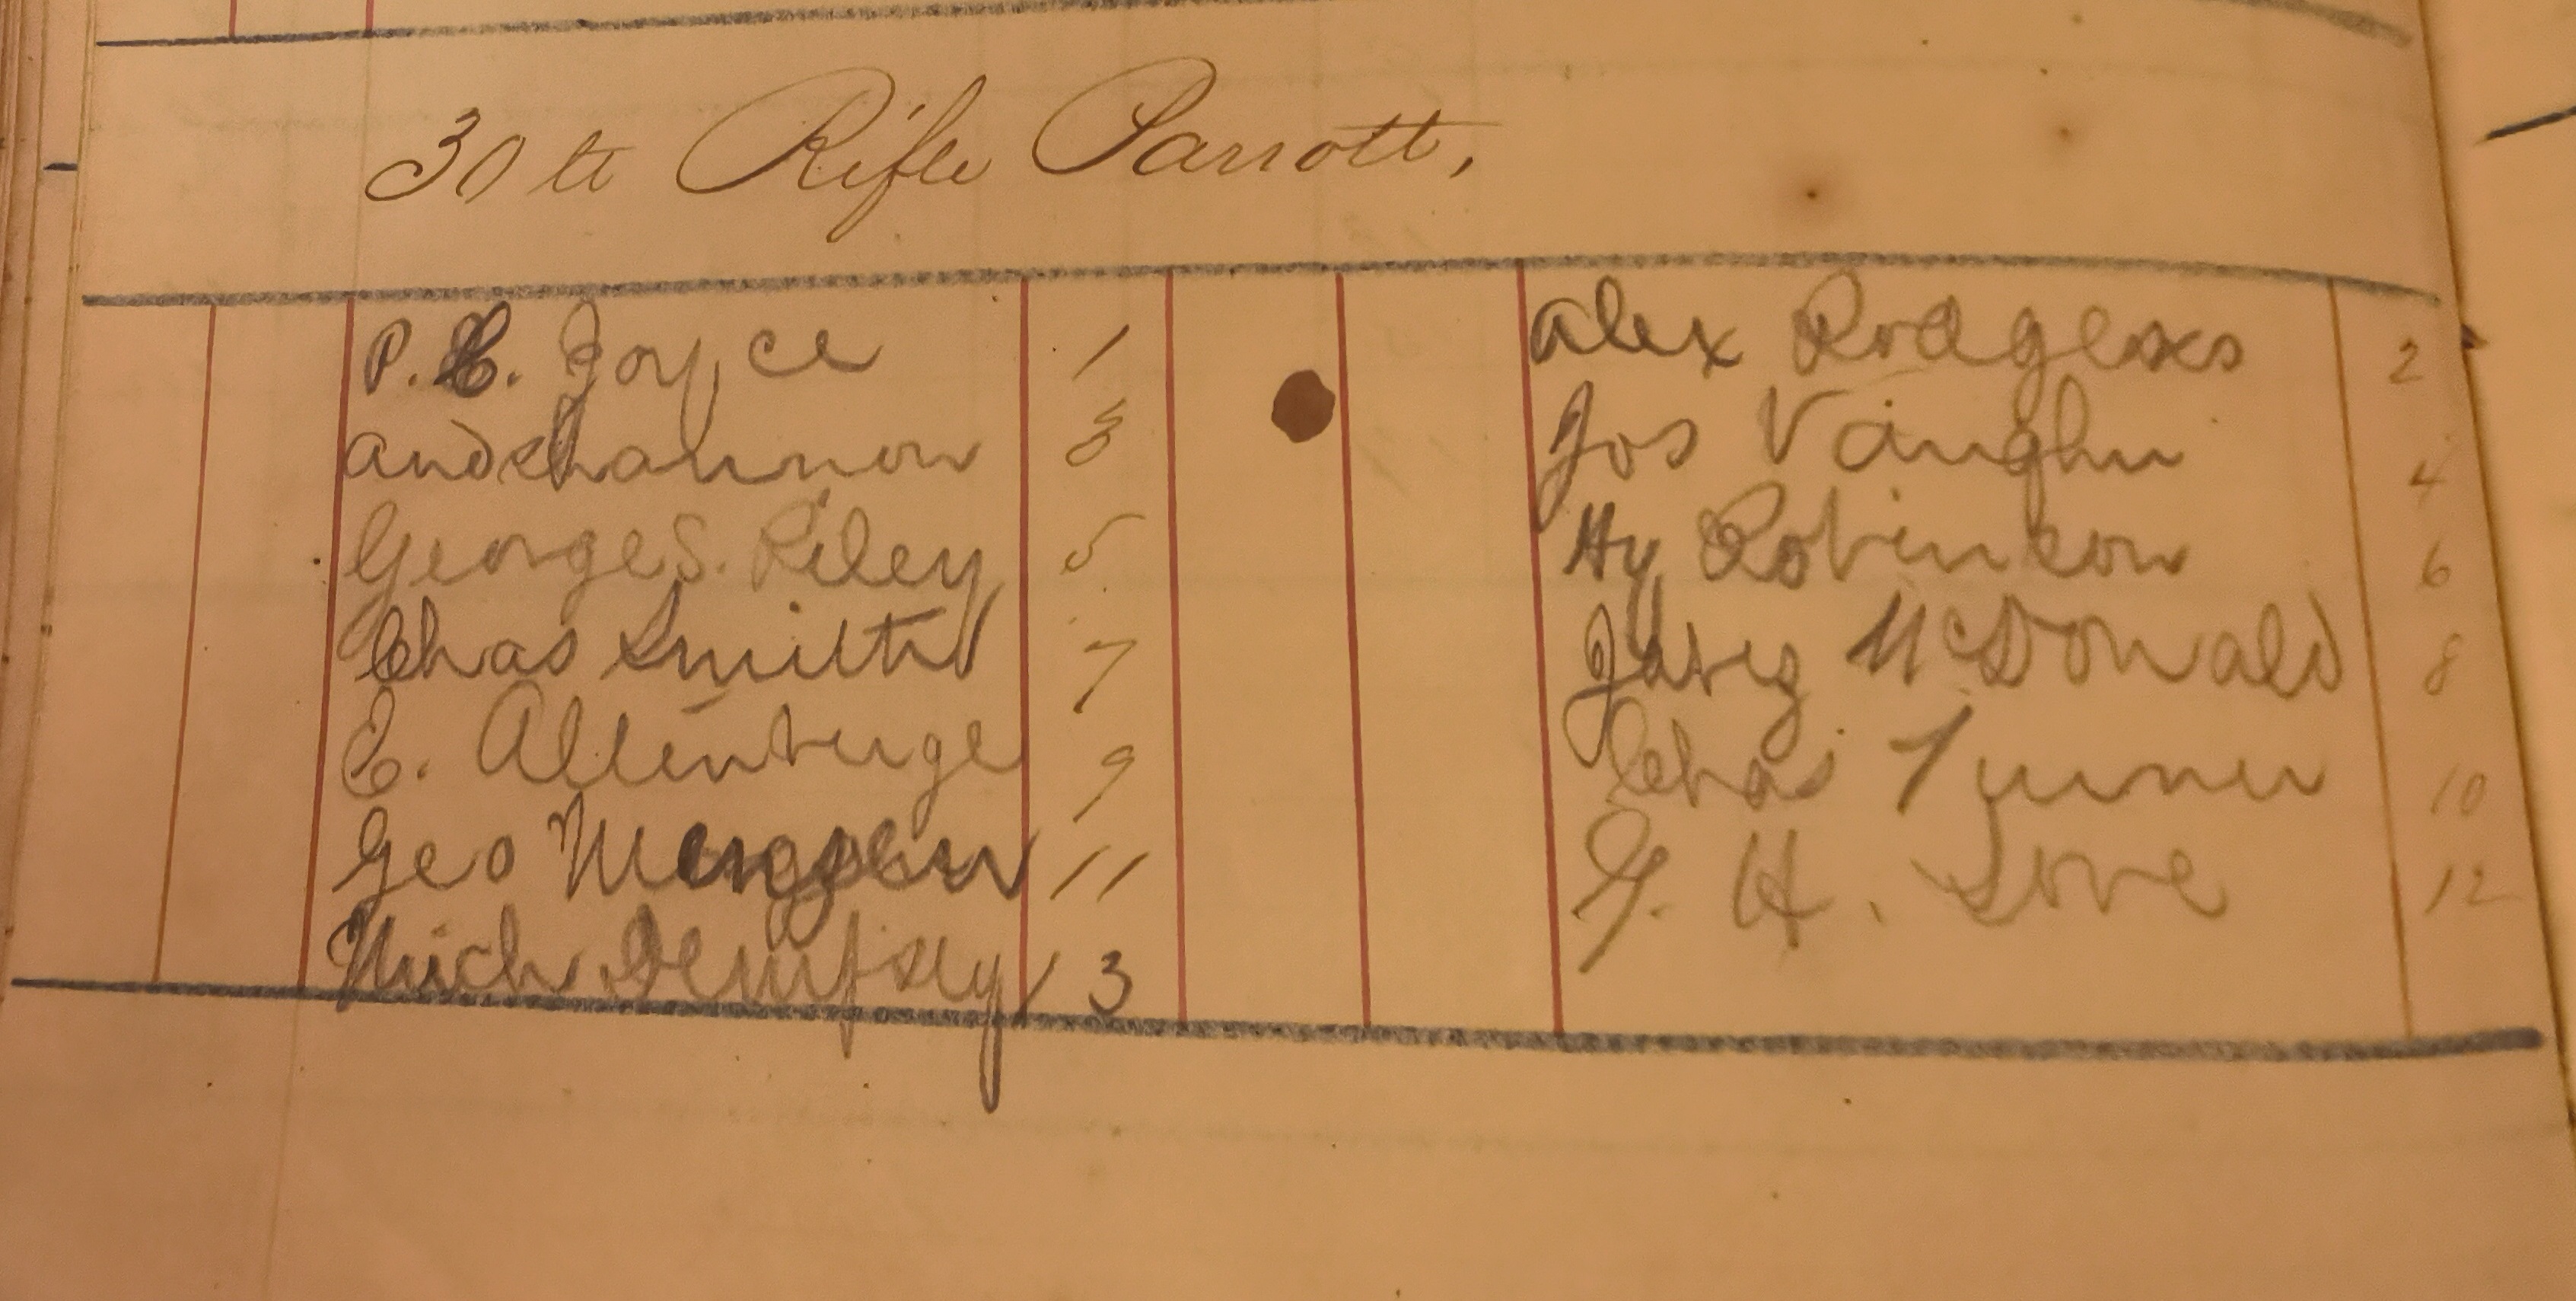 30 lb Rifle Parrott,
P. C. Joyce 1 Alex Rodgers 2
And Shannon 3 Jos Vaughn 4
George S. Riley 5 Hy Robinson 6
Chas Smith 7 McDonald 8
E. 9 Chas Turner 10
Geo 11 G. H. Love 12
Mich Dempsey 13